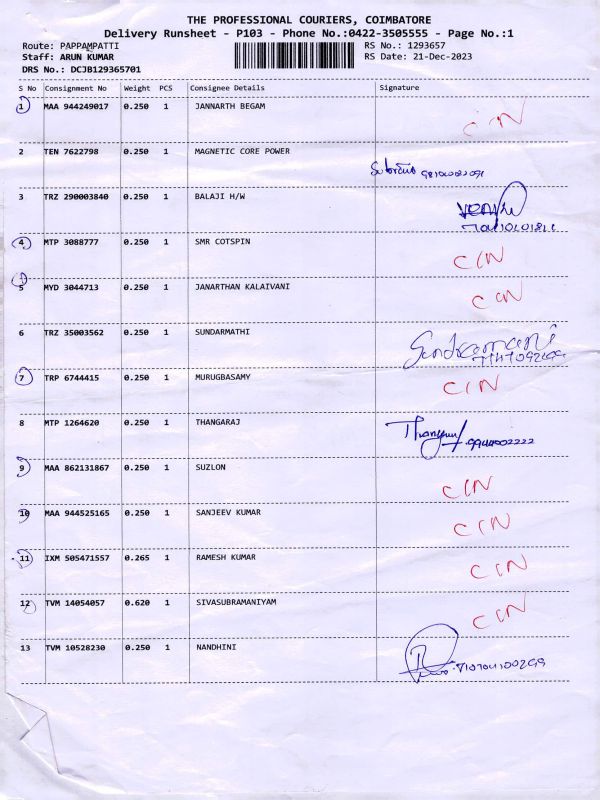 THE PROFESSIONAL COURIERS, COIMBATORE
Delivery Runsheet - P103 - Phone No.:0422-3505555 - Page No.:1
Route: PAPPAMPATTI RS No.: 1293657
Staff: ARUN KUMAR RS Date: 21-Dec-2023
DRS No.: DCJB129365701
S No Consignment No Weight PCS Consignee Details Signature
1 MAA 944249017 0.250 1 JANNARTH BEGAM CIN
2 TEN 7622798 0.250 1 MAGNETIC CORE POWER
3 TRZ 290003840 0.250 1 BALAJI H/W
4 MTP 3088777 0.250 1 SMR COTSPIN CIN
5 MYD 3044713 0.250 1 JANARTHAN KALAIVANI CIN
6 TRZ 35003562 0.250 1 SUNDARMATHI
7 TRP 6744415 0.250 1 MURUGBASAMY CIN
8 MTP 1264620 0.250 1 THANGARAJ
9 MAA 862131867 0.250 1 SUZLON CIN
10 MAA 944525165 0.250 1 SANJEEV KUMAR CIN
11 IXM 505471557 0.265 1 RAMESH KUMAR CIN
12 TVM 14054057 0.620 1 SIVASUBRAMANIYAM CIN
13 TVM 10528230 0.250 1 NANDHINI